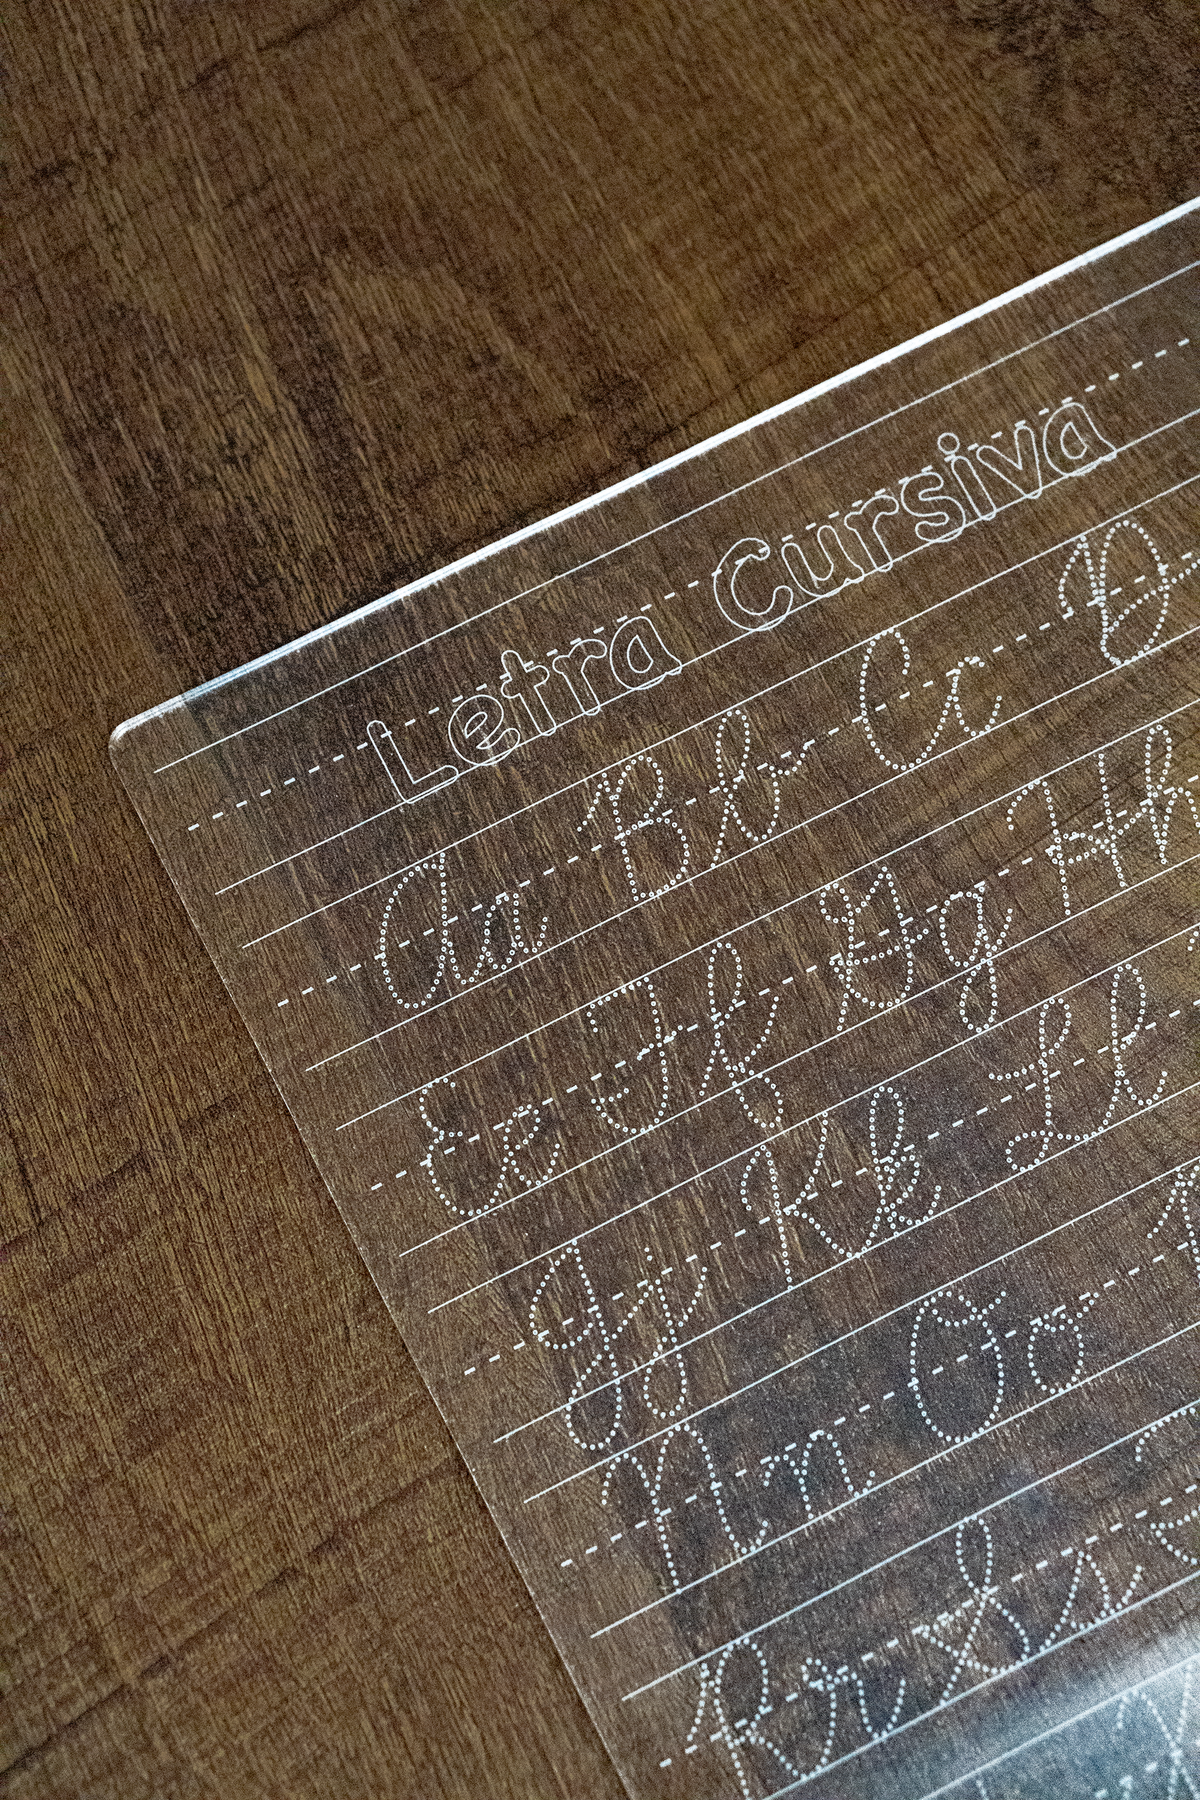 Letra Cursiva
Aa Bb Cc D
Ee Ff Gg Hh
Jj Kk Ll
Nn Oo
Rr Ss